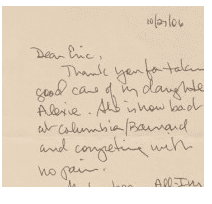 10/27/06
Dear Eric,
Thank you for takin
good care of my daughter
Alexie. She is now back
at Columbia/Barnard
and competing with
no pain.
All-Ivy